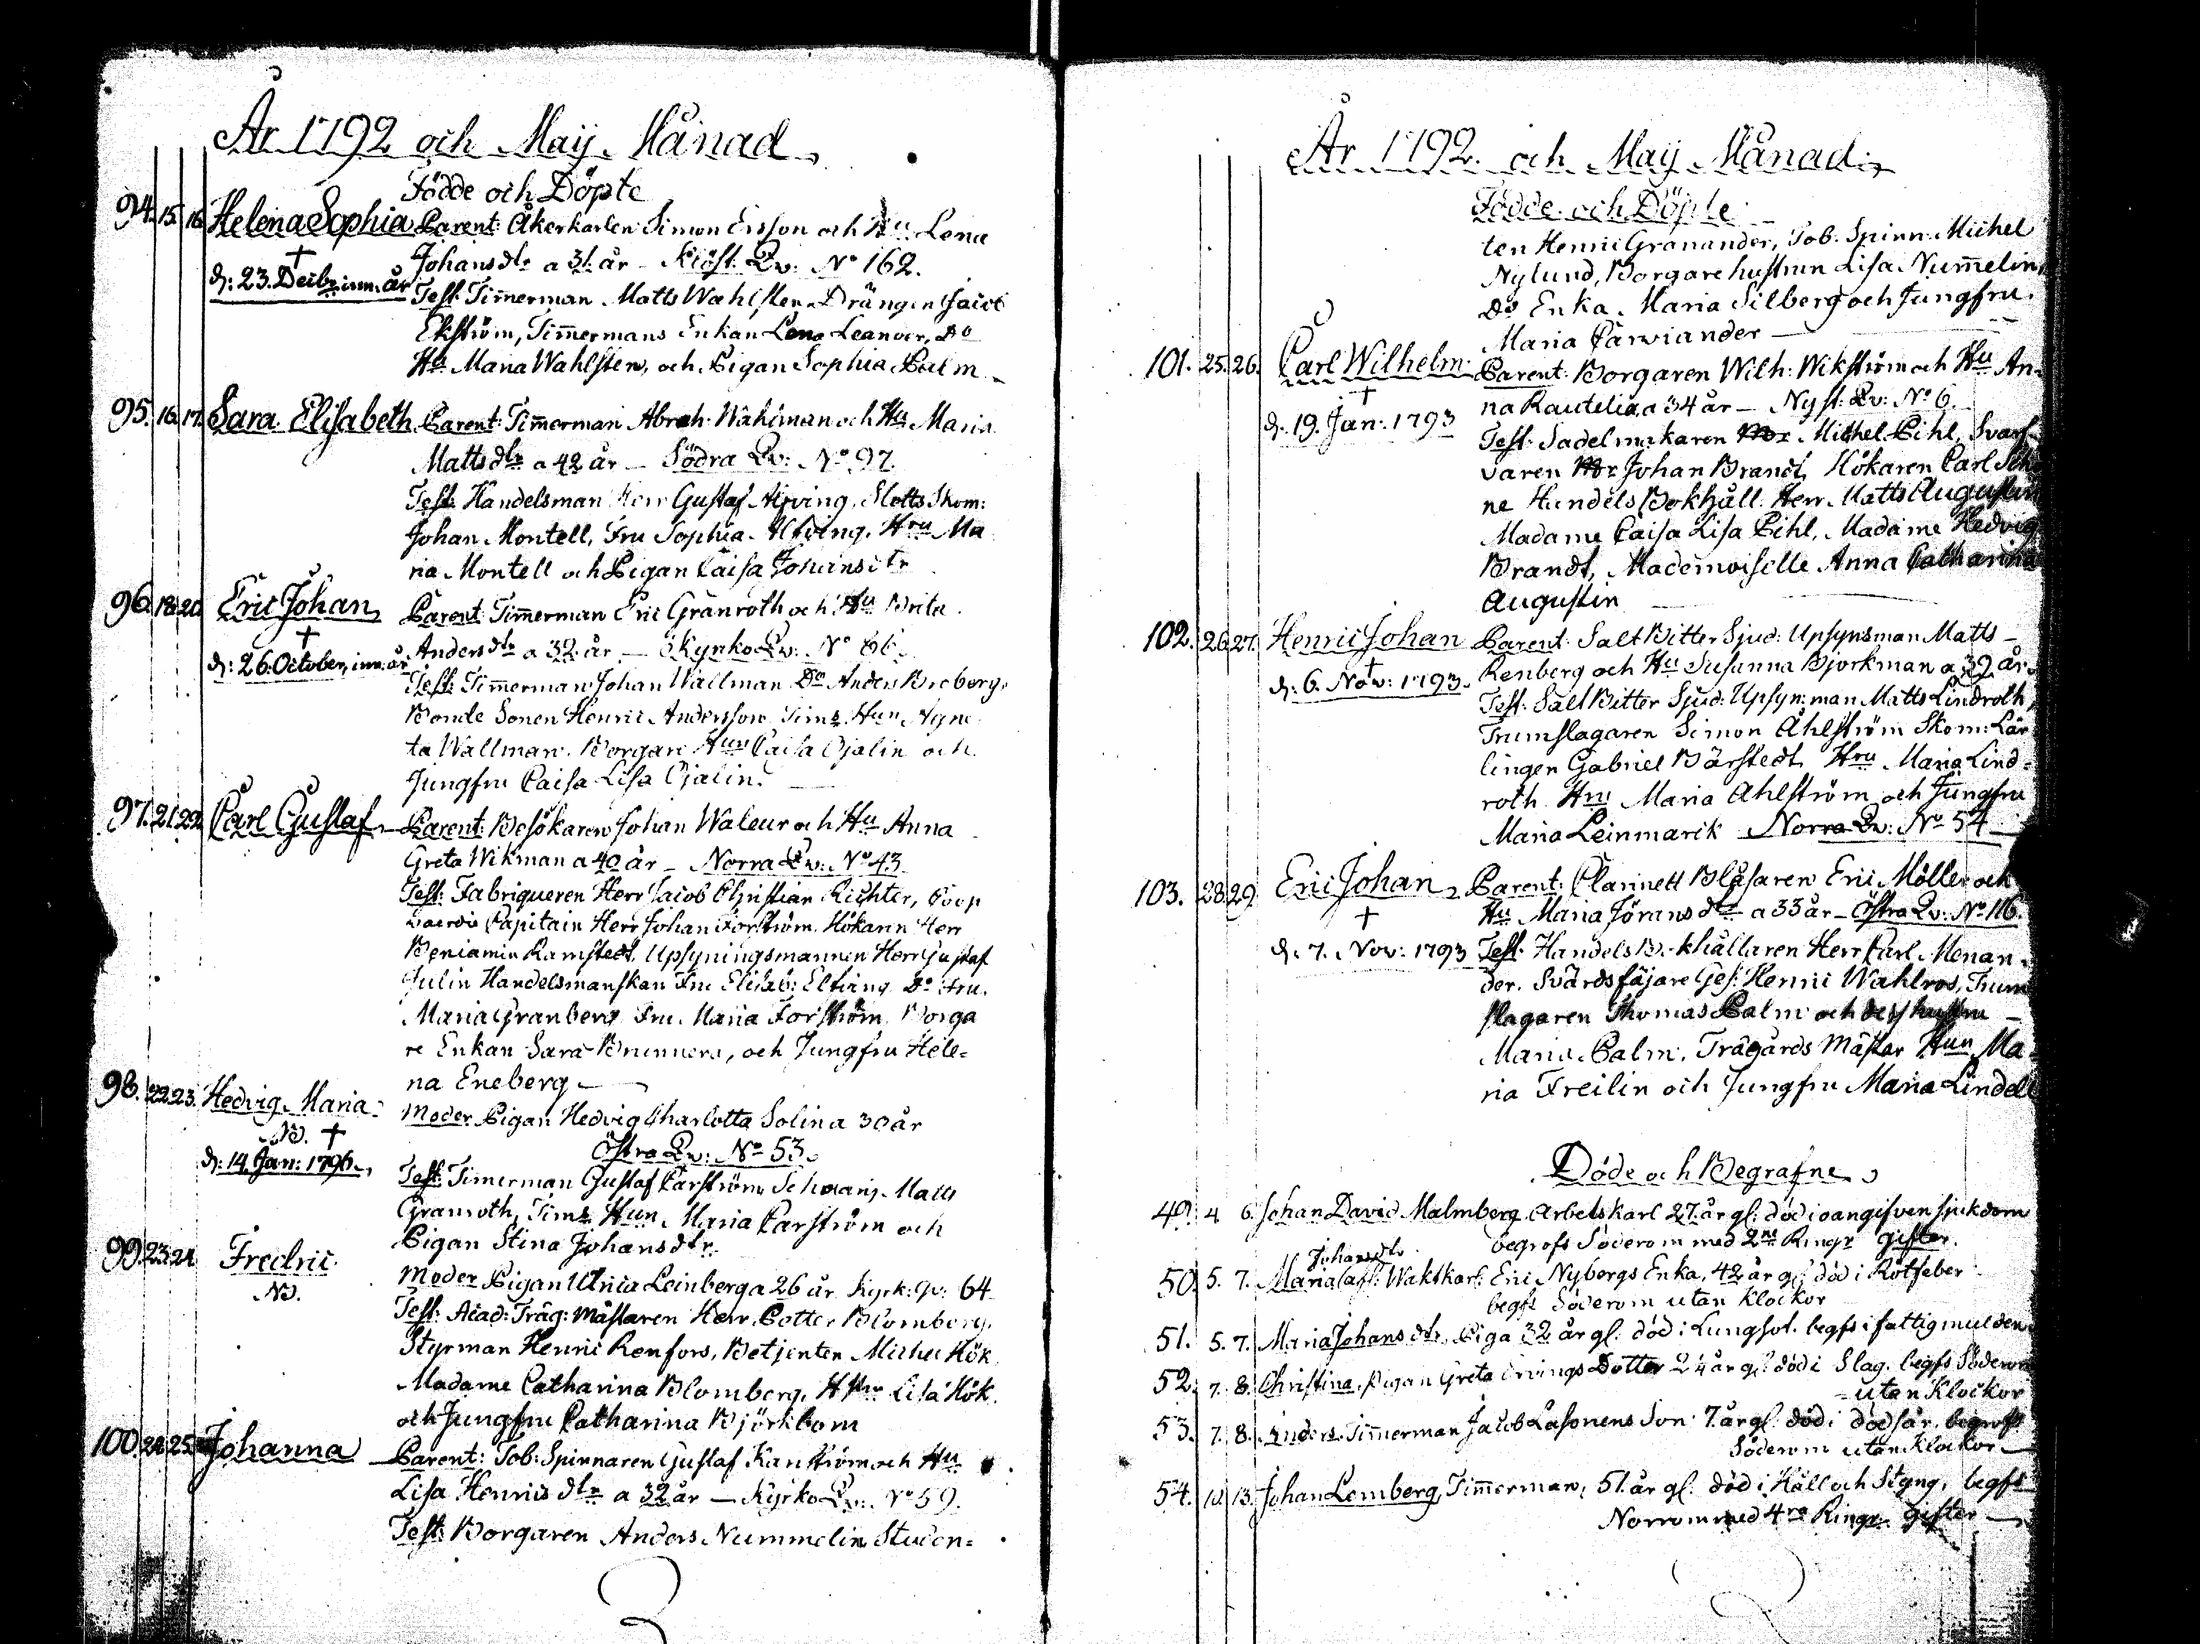 År 1792 och Maij Månad
Födde och Döpte
94. 15. 16. Helena Sophia Parent: Åkerkarlen Simon Ersson och Hu Lena
† Johansdtr a 31. år Klöst. Qv: No 162.
d: 23. Decibr inn. år Test: Tim̅erman Matts Wahlsten Drängen Jacob
Ekström, Tim̅ermans Enkan Lena Leander, Do
Hu Maria Wahlsten, och Pigan Sophia Palm
95. 16. 17. Sara Elisabeth Parent: Tim̅erman Abrah: Wahlman och Hu Maria
Mattsdtr a 42 år Södra Qv: No 97.
Test: Handelsman Herr Gustaf Alfving, Slotts Skom:
Johan Montell, Fru Sophia Alfving. Hru Ma
ria Montell och Pigan Caisa Johansdtr
96. 18. 20. Eric Johan Parent: Tim̅erman Eric Granroth och Hu Brita
† Andersdtr a 32 år Kyrko Qv: No 66.
d: 26. October, inn. år Test: Tim̅erman Johan Wallman Do Anders Broberg,
Bonde Sonen Henric Andersson Tims Hun Agne
ta Wallman. Borgare Hun Caisa Ojalin och
Jungfru Caisa Lisa Ojalin.
97. 21. 22. Carl Gustaf Parent: Besökaren Johan Waleur och Hu Anna
Greta Wikman a 40 år Norra Qv: No 43
Test: Fabriqueren Herr Jacob Christian Richter, Coop
vaerdie Capitain Herr Johan Forström. Hökaren Herr
Beniamin Ramstedt, Upsyningsmannen Herr Gustaf
Julin Handelsmanskan Fru Elisab: Elfving Do Fru.
Maria Granberg Fru Maria Forström, Borga
re Enkan Sara Brunnera, och Jungfru Hele=
na Eneberg
98. 22. 23. Hedvig Maria Moder Pigan Hedvig Charlotta Solin a 30 år
Nd. † Östra Qv: No 53.
d: 14. Jan: 1796. Test: Timerman Gustaf Carström, Schvarj. Matts
Granroth, Tims Hun Maria Carström och
Pigan Stina Johansdtr.
99. 23. 24. Fredric Moder Pigan Ulrica Leinberg a 26 år Kyrk: Qv: 64
Nd. Test: Acad: Träg: Mästaren Herr Potter Blomberg,
Styrman Henric Renfors, Betjenten Michel Hök
Madame Catharina Blomberg, Hru Lisa Hök.
och Jungfru Catharina Björkbom
100. 24. 25. Johanna Parent: Tob: Spinnaren Gustaf Kanström och Hu
Lisa Henricsdtr a 32 år Kyrko Qv: No 59.
Test: Borgaren Anders Nummelin Studen=
År 1792. och Maij Månad
Födde och Döpte
ten Henric Granander, Tob: Spinn: Michel
Nylund, Borgare hustrun Lisa Num̅elin,
Do Enka Maria Silberg och Jungfru
Maria Carviander
101. 25. 26. Carl Wilhelm Parent: Borgaren Wilh: Wikström och Hu An=
† na Rautelia a 34 år Nyst. Qv: No 6.
d: 19. Jan: 1793 Test: Sadelmakaren Mr Michel Pihl, Svarf=
varen Mr Johan Brandt, Hökaren Carl
ne Handels Bokhåll: Herr Matts Augustin
Madame Caisa Lisa Pihl, Madame Hedvig
Brandt, Mademoiselle Anna Catharina
Augustin
102. 26. 27. Henric Johan Parent: Salt Pitter Sjud: Upsynsman Matts
† Renberg och Hu Susanna Bjorkman a 39 år
d: 6. Nov: 1793. Test: Salt Pitter Sjud: Upsyn:man Matts Lindroth
Trumslagaren Simon Åhlström Skom: Lär
lingen Gabriel Bärstedt, Hru Maria Lind=
roth Hru Maria Ahlström och Jungfru
Maria Leinmarck Norra Qv: No 54
103. 28. 29. Eric Johan Parent: Clarinett Blåsaren Eric Möller och
† Hu Maria Jöransdtr a 33 år Östra Qv: No 116.
d: 7. Nov: 1793 Test: Handels Bokhållaren Herr Carl Menan=
der. Svärdsfäjare Ges: Henric Wahlros, Trum
slagaren Thomas Palm och des hustru
Maria Palm, Trägårds Mästar Hun Ma=
ria Freilin och Jungfru Maria Lindell
Döde och Begrafne
49. 4 6. Johan David Malmberg Arbetskarl 27. år gl: död i oangifven sjukdom
begrofs Söderom med 2ne Ringr gifter.
Johansdtr
50. 5. 7. Maria Caf: Waktkarl: Eric Nybergs Enka, 42 år gl: död i Rötfeber
begfs Söderom utan Klockor
51. 5. 7. Maria Johansdtr Piga 32 år gl: död i Lungsot. begfs i fattigmulden
52. 7. 8. Christina, Pigan Greta Ervings Dotter 2¼ år gl: död i Slag. begfs Söderom
utan Klockor
53. 7. 8. Anders Tim̅erman Jacob Lasonens Son 7. år gl: död i dödsår begrofs
Söderom utan Klockor
54. 10. 13. Johan Lemberg Tim̅erman, 51. år gl. död i Håll och Styng, begfs
Norrom med 4ra Ringr. gifter